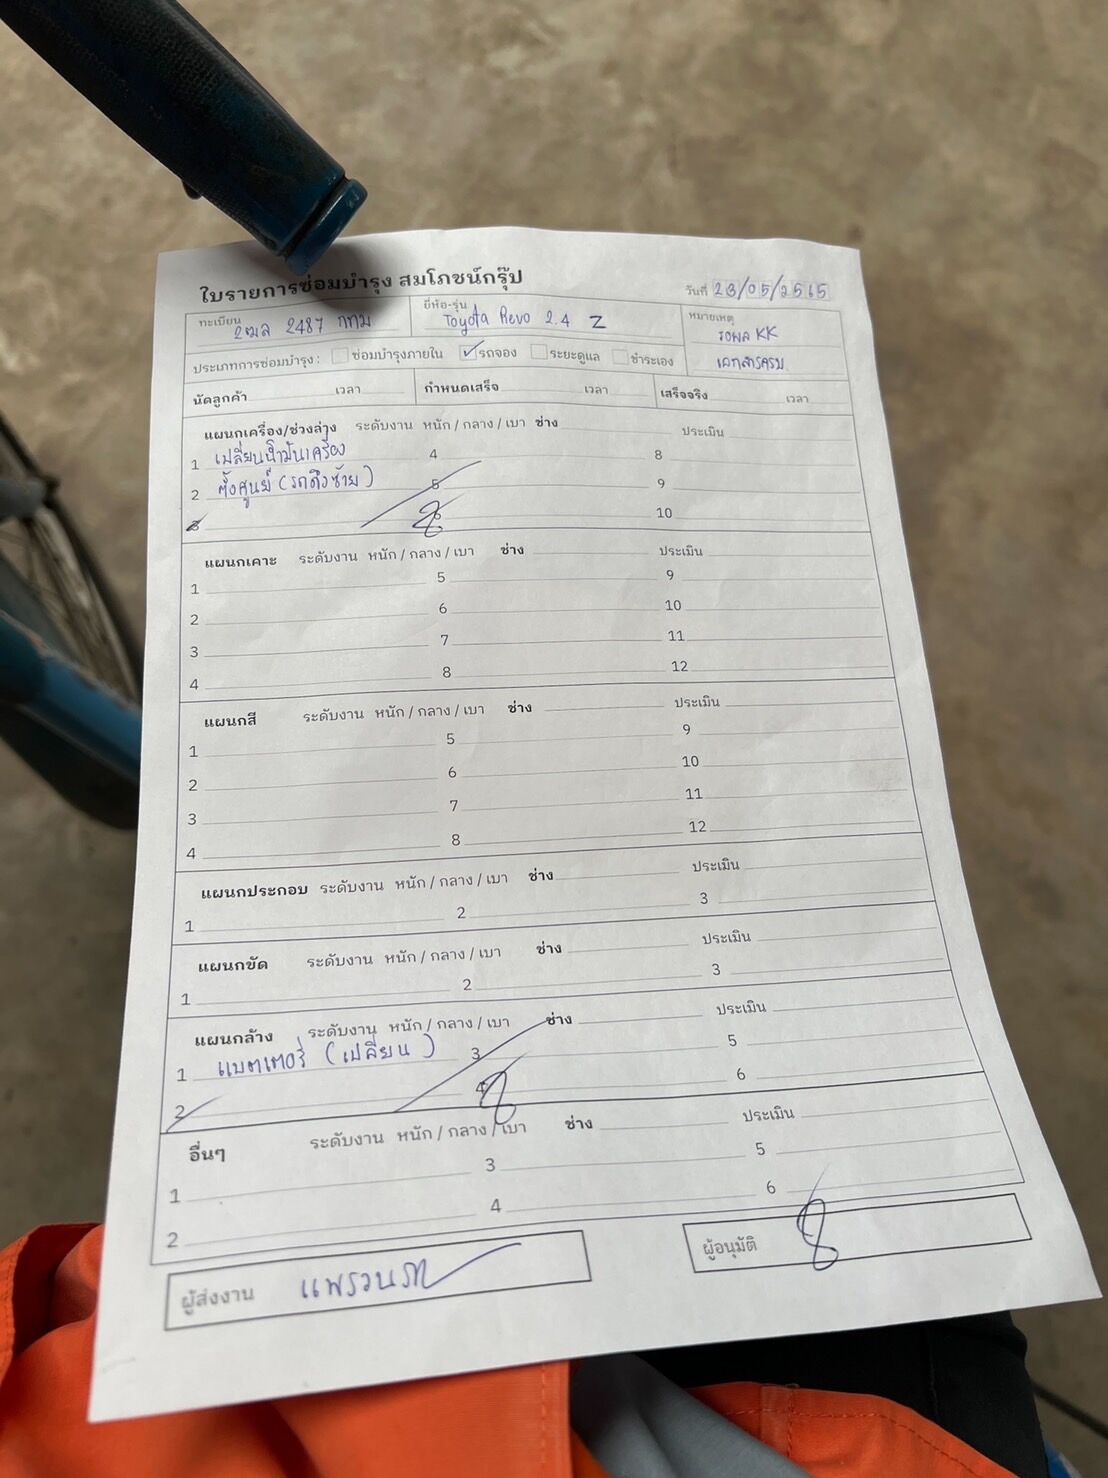 ใบรายการซ่อมบำรุง สมโภชน์กรุ๊ป วันที่ 23/05/2565
ทะเบียน 2ฒล 2487 กทม ยี่ห้อ-รุ่น Toyota Revo 2.4 Z หมายเหตุ
รอผล KK
ประเภทการซ่อมบำรุง : ซ่อมบำรุงภายใน รถจอง ระยะดูแล ชำระเอง เอกสารครบ
นัดลูกค้า เวลา กำหนดเสร็จ เวลา เสร็จจริง เวลา
แผนกเครื่อง/ช่วงล่าง ระดับงาน หนัก / กลาง / เบา ช่าง ประเมิน
1 เปลี่ยนน้ำมันเครื่อง 4 8
2 ตั้งศูนย์ (รถดึงซ้าย) 5 9
3 6 10
แผนกเคาะ ระดับงาน หนัก / กลาง / เบา ช่าง ประเมิน
1 5 9
2 6 10
3 7 11
4 8 12
แผนกสี ระดับงาน หนัก / กลาง / เบา ช่าง ประเมิน
1 5 9
2 6 10
3 7 11
4 8 12
แผนกประกอบ ระดับงาน หนัก / กลาง / เบา ช่าง ประเมิน
1 2 3
แผนกขัด ระดับงาน หนัก / กลาง / เบา ช่าง ประเมิน
1 2 3
แผนกล้าง ระดับงาน หนัก / กลาง / เบา ช่าง ประเมิน
1 แบตเตอรี่ (เปลี่ยน) 3 5
2 4 6
อื่นๆ ระดับงาน หนัก / กลาง / เบา ช่าง ประเมิน
1 3 5
2 4 6
ผู้ส่งงาน ผู้อนุมัติ